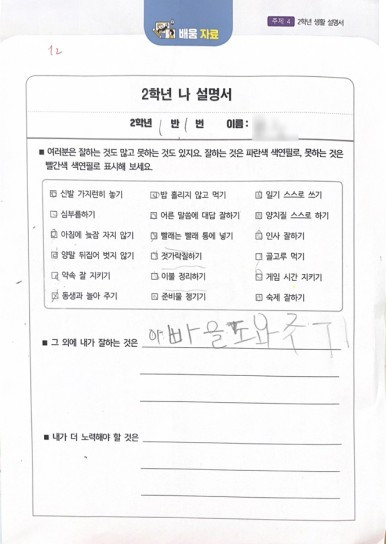 배움 자료
주제 4 2학년 생활 설명서
12
2학년 나 설명서
2학년 1 반 1 번 이름:
■ 여러분은 잘하는 것도 많고 못하는 것도 있지요. 잘하는 것은 파란색 색연필로, 못하는 것은
빨간색 색연필로 표시해 보세요.
신발 가지런히 놓기 밥 흘리지 않고 먹기 일기 스스로 쓰기
심부름하기 어른 말씀에 대답 잘하기 양치질 스스로 하기
아침에 늦잠 자지 않기 빨래는 빨래 통에 넣기 인사 잘하기
양말 뒤집어 벗지 않기 젓가락질하기 골고루 먹기
약속 잘 지키기 이불 정리하기 게임 시간 지키기
동생과 놀아 주기 준비물 챙기기 숙제 잘하기
■ 그 외에 내가 잘하는 것은 아빠을도와주기
■ 내가 더 노력해야 할 것은